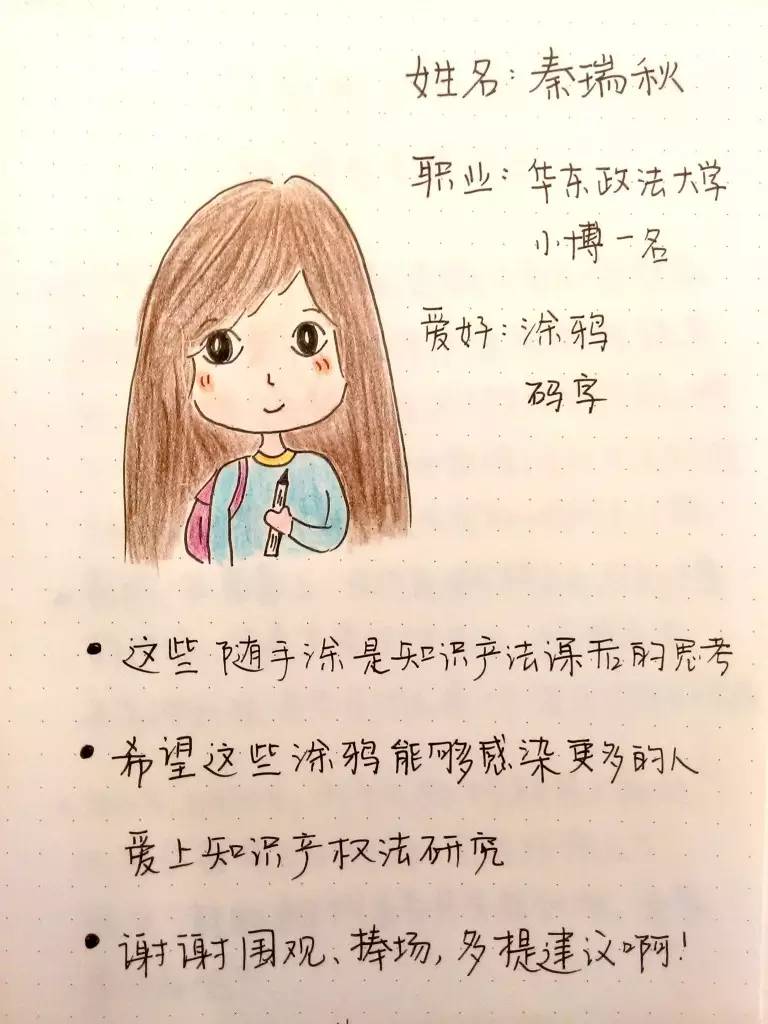 姓名：秦瑞秋
职业：华东政法大学
小博一名
爱好：涂鸦
码字
• 这些随手涂是知识产法课后的思考
• 希望这些涂鸦能够感染更多的人
爱上知识产权法研究
• 谢谢围观、捧场，多提建议啊！